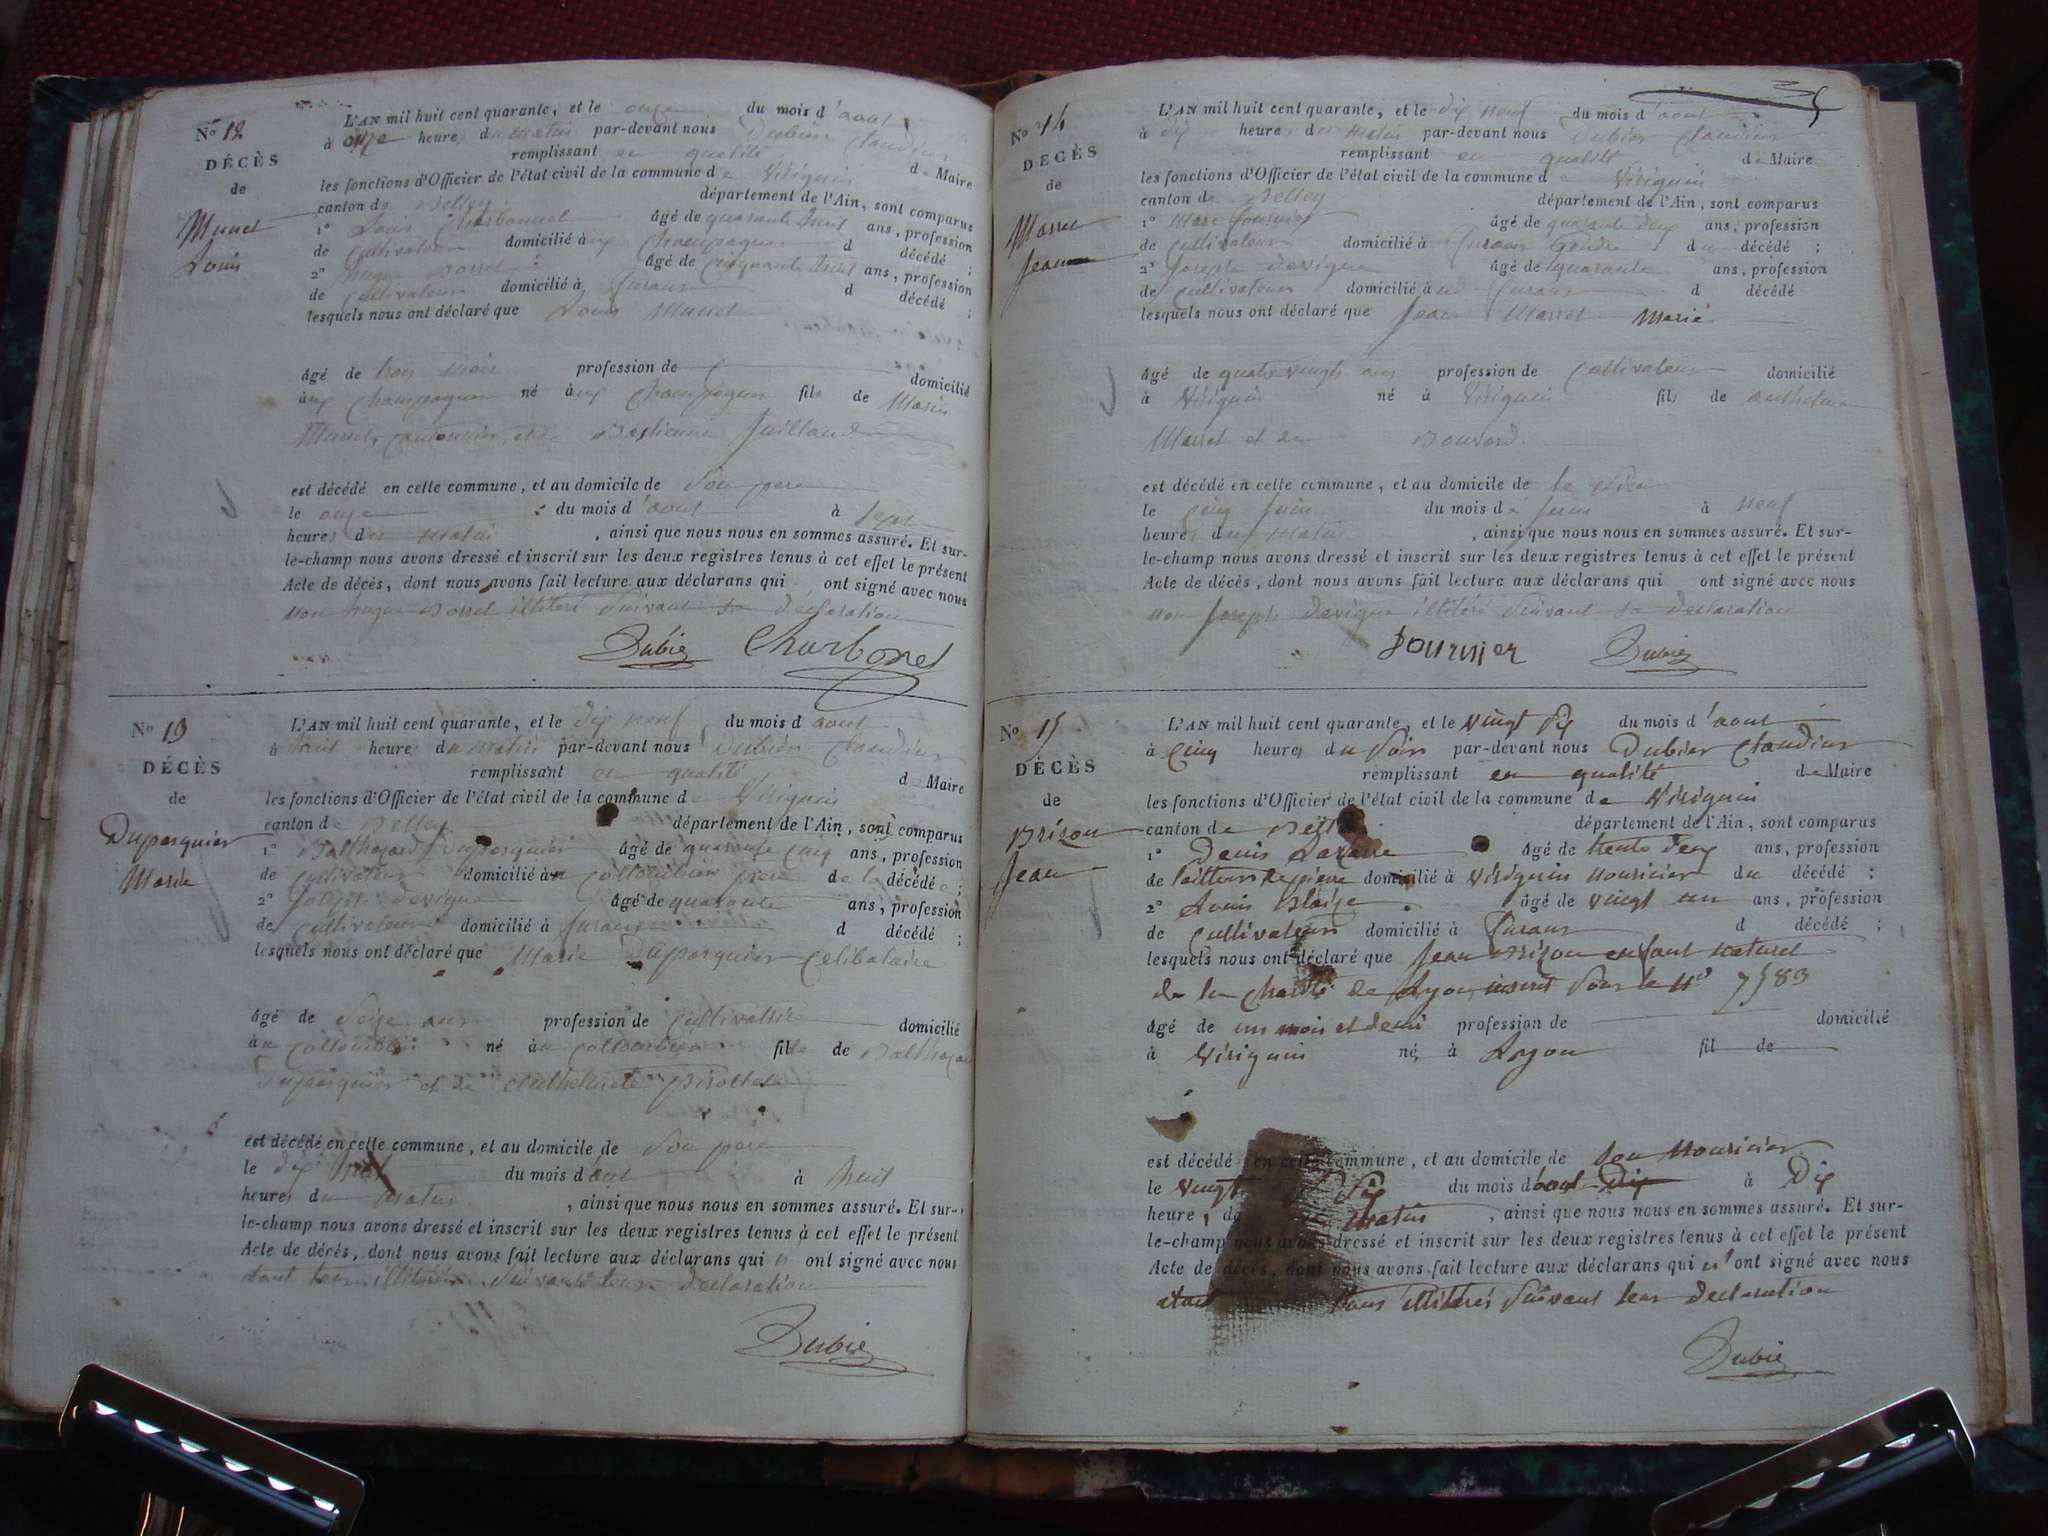 No 12
DÉCÈS
de
Munet
Louis
L'AN mil huit cent quarante, et le onze du mois d'aout
à onze heures du matin par-devant nous Dubien Claudius
remplissant en qualité de Maire
les fonctions d'Officier de l'état civil de la commune de Virignin
canton de Belley département de l'Ain, sont comparus
1° Louis Charbonnet âgé de quarante huit ans, profession
de cultivateur domicilié aux Champagnes d décédé ;
2° hugue âgé de cinquante huit ans, profession
de cultivateur domicilié à d décédé ;
lesquels nous ont déclaré que Louis Munet
âgé de trois mois profession de domicilié
aux Champagnes né aux Champagnes fils de Marin
Munet, et de Bastienne
est décédé en cette commune, et au domicile de Son pere
le onze du mois d'aout à Sept
heures du matin, ainsi que nous nous en sommes assuré. Et sur-
le-champ nous avons dressé et inscrit sur les deux registres tenus à cet effet le présent
Acte de décès, dont nous avons fait lecture aux déclarans qui ont signé avec nous
non hugue illiteré Suivant Sa déclaration
Dubie Charbonet
No 13
DÉCÈS
de
Duparquier
Marie
L'AN mil huit cent quarante, et le dix neuf du mois d aout
à huit heures du matin par-devant nous Dubien Claudius
remplissant en qualité de Maire
les fonctions d'Officier de l'état civil de la commune de Virignin
canton de Belley département de l'Ain, sont comparus
1° Balthazard Duparquier âgé de quarante cinq ans, profession
de cultivateur domicilié au pere de la décédée ;
2° Joseph Devigne âgé de quarante ans, profession
de cultivateur domicilié à d décédé ;
lesquels nous ont déclaré que Marie Duparquier Celibataire
âgé de Seize ans profession de Cultivatrice domicilié
au né au fille de Balthazar
Duparquier et de
est décédé en cette commune, et au domicile de Son pere
le dix neuf du mois d'aout à huit
heures du matin, ainsi que nous nous en sommes assuré. Et sur-
le-champ nous avons dressé et inscrit sur les deux registres tenus à cet effet le présent
Acte de décès, dont nous avons fait lecture aux déclarans qui n ont signé avec nous
Suivant leur declaration
Dubie
No 14
DECÈS
de
Marret
Jean
L'AN mil huit cent quarante, et le dix neuf du mois d'aout
à dix heures du matin par-devant nous Dubier Claudius
remplissant en qualité de Maire
les fonctions d'Officier de l'état civil de la commune de Virignin
canton de Belley département de l'Ain, sont comparus
1° Marc fournier âgé de quarante deux ans, profession
de cultivateur domicilié à Gendre du décédé ;
2° Joseph Devigne âgé de quarante ans, profession
de cultivateur domicilié à d décédé
lesquels nous ont déclaré que Jean Marret Marié
âgé de quatre vingts ans profession de Cultivateur domicilié
à Virignin né à Virignin fils de anthelme
Marret et de Bouvard
est décédé en cette commune, et au domicile de le
le cinq Juin du mois de Juin à neuf
heures du matin, ainsi que nous nous en sommes assuré. Et sur-
le-champ nous avons dressé et inscrit sur les deux registres tenus à cet effet le présent
Acte de décès, dont nous avons fait lecture aux déclarans qui ont signé avec nous
non Joseph Devigne illiteré Suivant Sa declaration
Fournier Dubie
No 15
DÉCÈS
de
Brison
Jean
L'AN mil huit cent quarante, et le vingt Six du mois d'aout
à cinq heures du Soir par-devant nous Dubier Claudius
remplissant en qualité de Maire
les fonctions d'Officier de l'état civil de la commune de Virignin
canton de département de l'Ain, sont comparus
1° Denis âgé de trente deux ans, profession
de domicilié à Virignin nouricier du décédé ;
2° Louis Blaize âgé de vingt un ans, profession
de cultivateur domicilié à d décédé ;
lesquels nous ont déclaré que Jean Brison enfant naturel
de la charité de Lyon, inscrit Sous le No 7583
âgé de un mois et demi profession de domicilié
à Virignin né à Lyon fil de
est décédé en cette commune, et au domicile de Son Nouricier
le vingt Six du mois d'aout Dix à Dix
heure, du matin, ainsi que nous nous en sommes assuré. Et sur-
le-champ nous avons dressé et inscrit sur les deux registres tenus à cet effet le présent
Acte de décès, dont nous avons fait lecture aux déclarans qui n'ont signé avec nous
étant tous illiterés Suivant leur declaration
Dubie